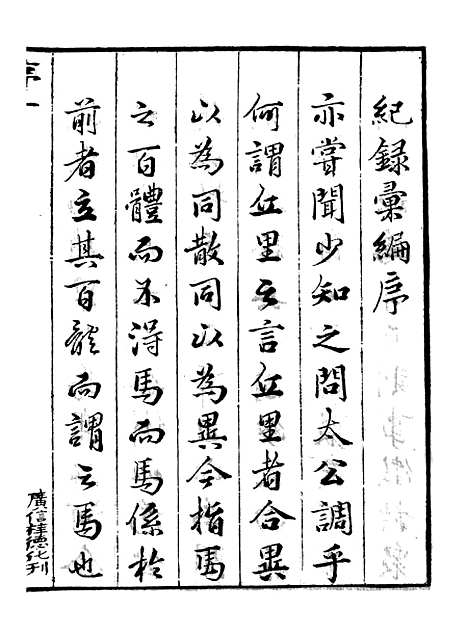 紀録彙編序
亦嘗聞少知之問太公調乎
何謂丘里之言丘里者合異
以為同散同以為異今指馬
之百體而不得馬而馬係於
前者立其百體而謂之馬也
序一